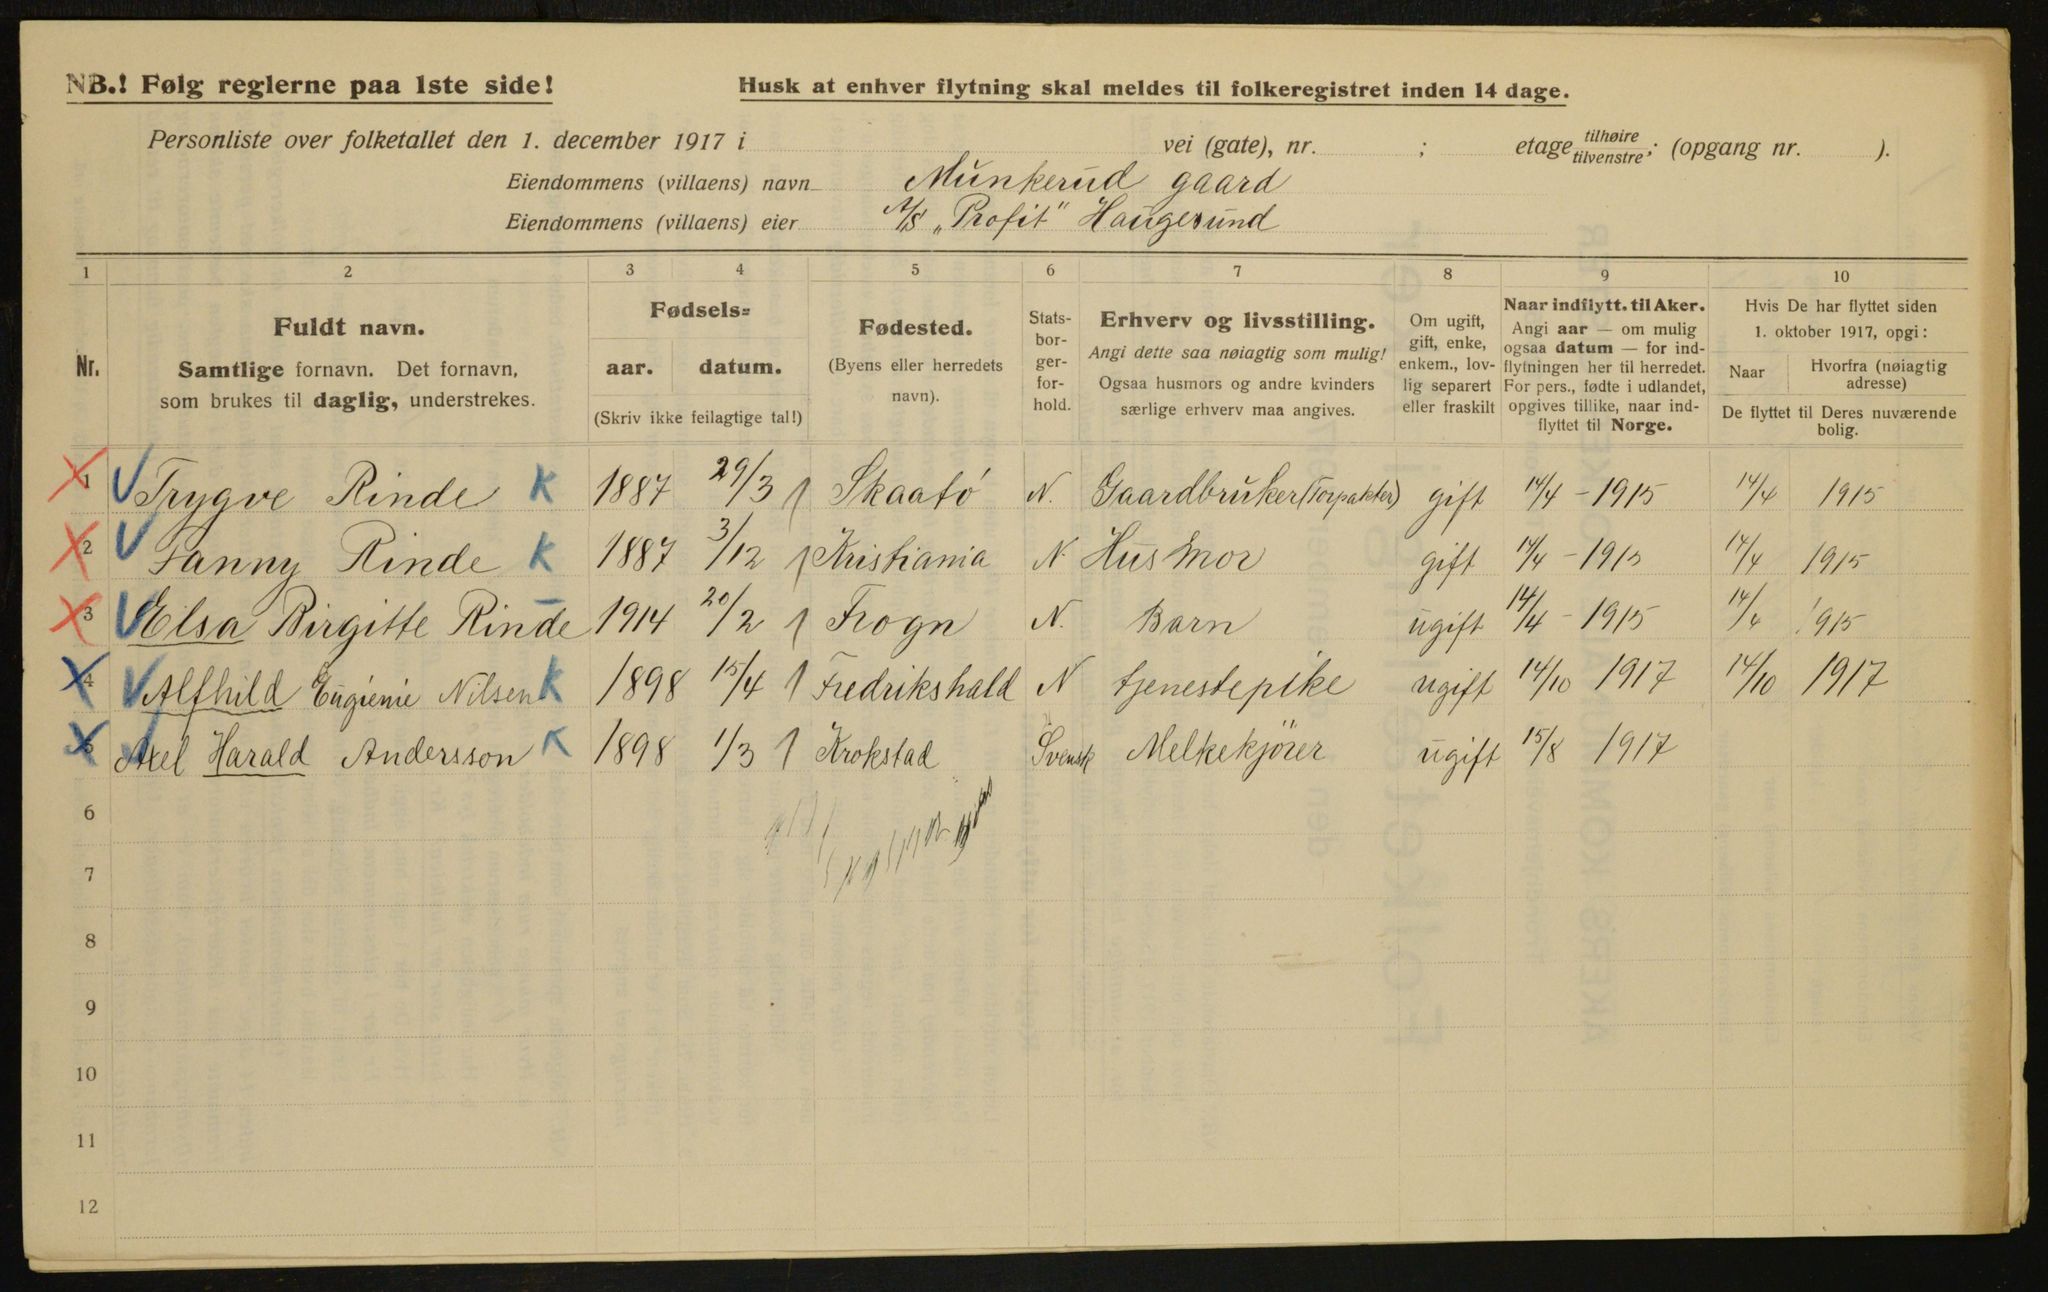 NB.! Følg reglerne paa 1ste side!
Husk at enhver flytning skal meldes til folkeregistret inden 14 dage.
Personliste over folketallet den 1. december 1917 i vei (gate), nr. ; etage tilhøire tilvenstre; (opgang nr. ).
Eiendommens (villaens) navn Munkerud gaard
Eiendommens (villaens) eier A/S „Profit" Haugesund
1 2 3 4 5 6 7 8 9 10
Nr.
Fuldt navn.
Samtlige fornavn. Det fornavn,
som brukes til daglig, understrekes.
Fødsels=
aar. datum.
(Skriv ikke feilagtige tal!)
Fødested.
(Byens eller herredets
navn).
Stats-
bor-
ger-
for-
hold.
Erhverv og livsstilling.
Angi dette saa nøiagtig som mulig!
Ogsaa husmors og andre kvinders
særlige erhverv maa angives.
Om ugift,
gift, enke,
enkem., lov-
lig separert
eller fraskilt
Naar indflytt. til Aker.
Angi aar — om mulig
ogsaa datum — for ind-
flytningen her til herredet.
For pers., fødte i udlandet,
opgives tillike, naar ind-
flyttet til Norge.
Hvis De har flyttet siden
1. oktober 1917, opgi:
Naar Hvorfra (nøiagtig
adresse)
De flyttet til Deres nuværende
bolig.
1 Trygve Rinde K 1887 29/3 Skaatö N. Gaardbruker (Forpakter) gift 14/4 - 1915 14/4 1915
2 Fanny Rinde K 1887 3/12 Kristiania N. Husmor gift 14/4 - 1915 14/4 1915
3 Elsa Birgitte Rinde 1914 20/2 Frogn N. Barn ugift 14/4 - 1915 14/4 1915
4 Alfhild Eugienie Nilsen K 1898 15/4 Fredrikshald N tjenestepike ugift 14/10 1917 14/10 1917
5 Axel Harald Andersson K 1898 1/3 Krokstad Svensk Melkekjörer ugift 15/8 1917
6
7
8
9
10
11
12